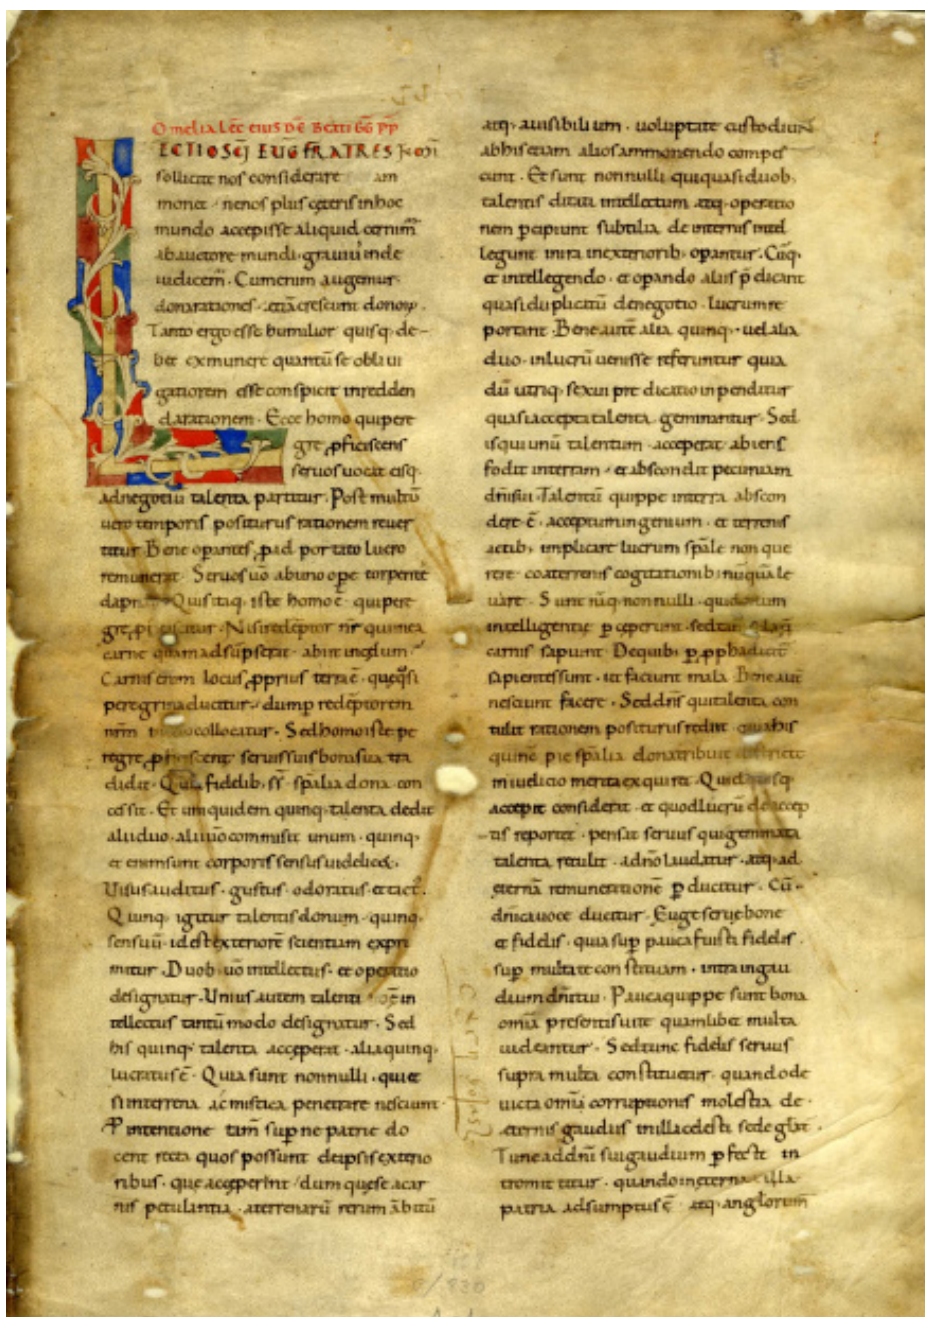 Omelia lec̄ eiusdē Beati GG pp
LECTIO SC̄I EUG̃ FRATRES k̄mi
sollicite nos considerare am
monet · ne nos plus ceteris in hoc
mundo accepisse aliquid cernim̄
ab auctore mundi · graviu' inde
iudicem̄ · Cum enim augentur
dona rationes · etiā crescunt donoꝝ ·
Tanto ergo esse humilior quisq · de-
bet ex munere quantū se obli ui
gatiorem esse conspicit in redden
da rationem · Ecce homo qui pere
gre ꝓficiscens
servos vocat eisq ·
ad negotiū talenta partitur · Post multū
uero temporis positurus rationem reuer
titur Bene oparites ꝓ adportato lucro
remunerat · Seruos uō a bono ope torpente
dapnat Quis itaq · iste homo ē · qui pere
gre Nisi redēptor nr̄ qui in ea
carne quam adsūpserat · abiit in cęlum
Carnis enim locus ꝓprius terra ē · quę q̄si
peregrina ducitur · dum p redēptorem
nr̄m in collocatur · Sed homo iste pe
regre seruis suis bona sua tra
didit · Quia fidelib · sꝰ sp̄alia dona con
cessit · Et uni quidem quinq · talenta dedit
alii duo · alii uō commisit unum · quinq ·
et enim sunt corporis sensus uidelicet ·
Uisus auditus · gustus · odoratus et tact' ·
Quinq · igitur talentis donum · quinq ·
sensuū · id est exteriorē scientiam expri
mitur · Duob · uō intellectus · et operatio
designatur · Unius autem talenti in
tellectus tantūmodo designatur · Sed
his quinq · talenta acceperat · alia quinq ·
lucratus ē · Quia sunt nonnulli · qui et
si interna ac mistica penetrare nesciunt ·
P intentione tam̄ supne patrie do
cent recta quos possunt de ipsis exterio
ribus · que acceperint / dum que se a car
nis petulantia · a terrenarū rerum ābitū
atq · a uisibilium · uoluptate custodiun
ab his etiam alios ammonendo compes
cunt · Et sunt nonnulli qui quasi duob ·
talentis ditati intellectum atq · operatio
nem pcipiunt subtilia de internis intel
legunt mira in exteriorib · opantur · Cūq ·
et intellegendo · et opando aliis p̄dicant
quasi duplicatū de negotio · lucrum re
portant · Bene autē alia quinq · uel alia
duo · in lucrū uenisse referuntur quia
dū utriq · sexui predicatio inpenditur
quasi accepta talenta geminantur · Sed
is qui unū talentum · acceperat abiens
fodit in terram · et abscondit pecuniam
dn̄i sui · Talentū quippe in terra abscon
dere ē · acceptum ingenium · et terrenis
actib · implicare lucrum sp̄ale non que
rere · cor a terrenis cogitationib · nūquā le
uare · Sunt nāq · nonnulli · qui donum
intelligentie pceperunt · sed tam̄
carnis sapiunt De quib · p ꝓphā dicit̄
sapientes sunt · ut faciunt mala Bene autē
nesciunt facere · Sed dn̄s qui talenta con
tulit rationem positurus redit quia his
qui nc̄ pie sp̄alia dona tribuit districte
in iudicio merita exquiret · Quid q̄sq ·
accepit considerit · et quod lucrū de accep
tis reportet · pensat seruus qui geminata
talenta retulit · a dn̄o laudatur · atq · ad
eternā remunerationē pducitur · Cū ·
dn̄ica uoce dicitur · Euge serue bone
et fidelis · quia sup pauca fuisti fidelis ·
sup multa te constituam · intra in gau
dium dn̄i tui · Pauca quippe sunt bona
om̄ia presentis uite quamlibet multa
uideantur · Sed tunc fidelis seruus
supra multa constituetur · quando de
uicta om̄i corruptionis molestia de ·
eternis gaudiis in illa cęlesti sede glat̄ ·
Tunc ad dn̄i sui gaudium pfecte in
tromittitur · quando in eterna illa
patria adsumptus ē atq · anglorum